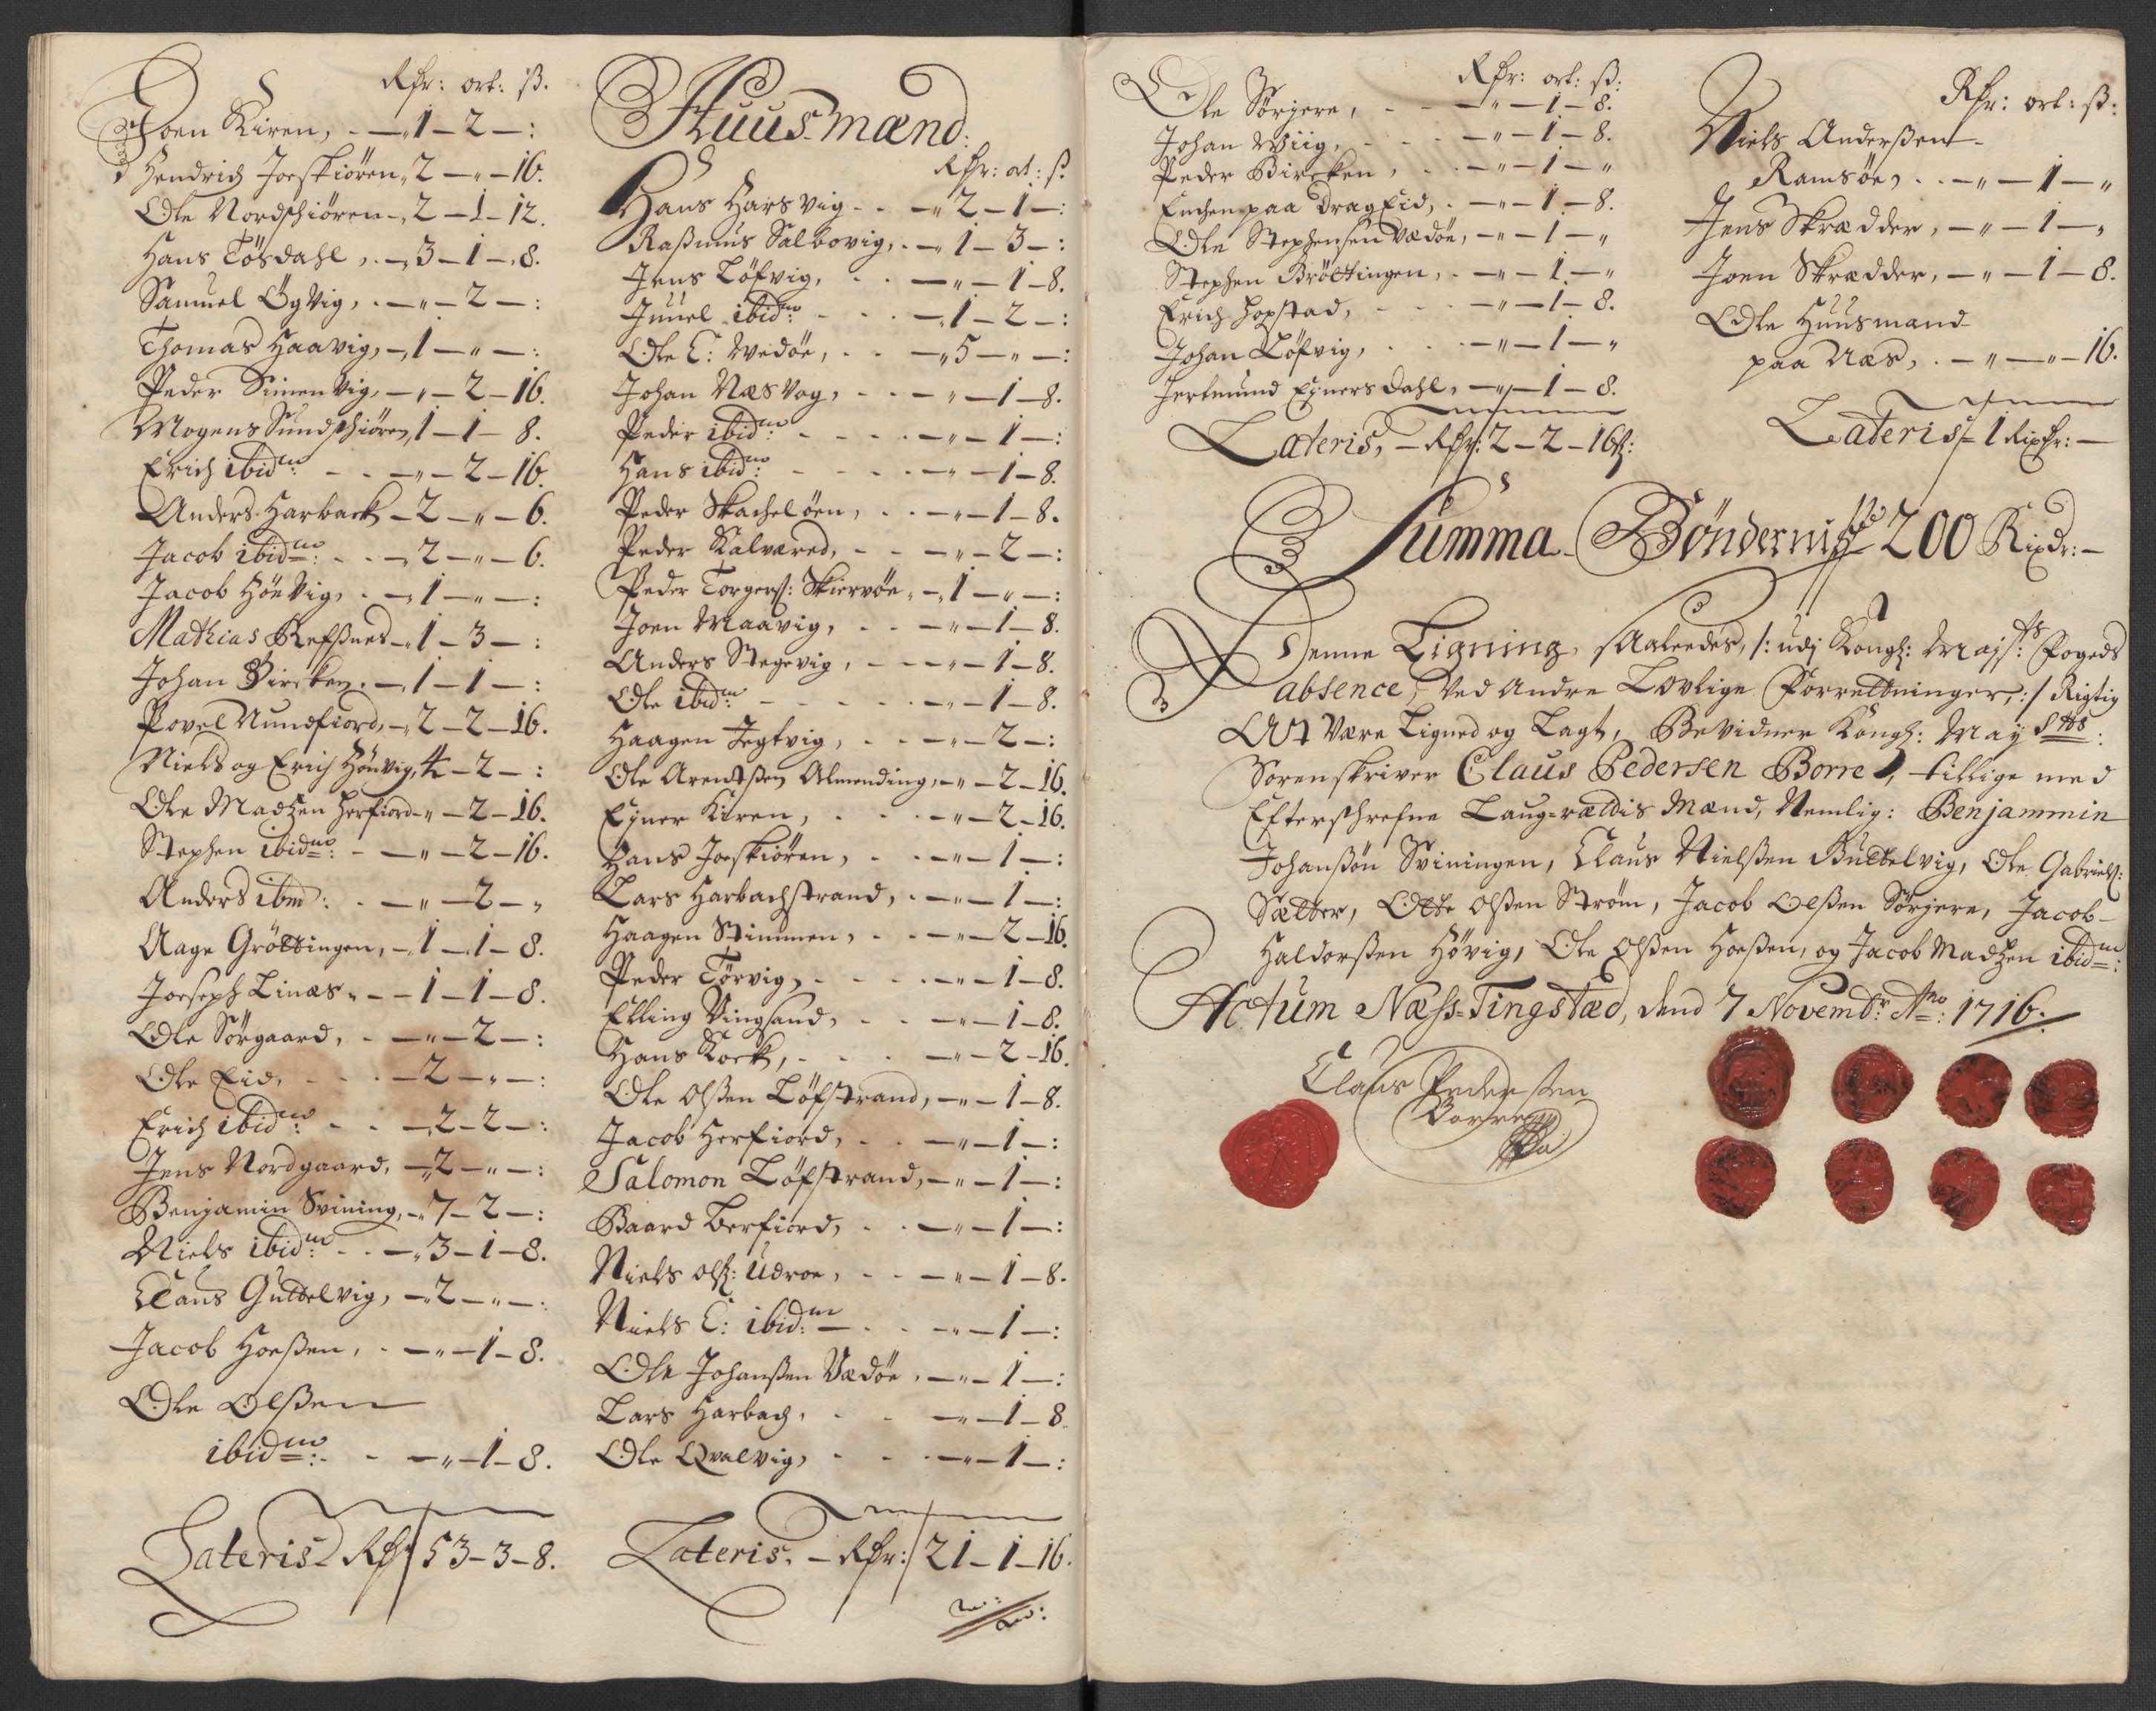 Rdr: ort: ß.
Joen Kiren, - — „1 – 2 – :
Hendrich Joeskiören „ 2 – „ – 16.
Ole Nordskiören – „ 2 – 1 – 12.
Hans Tösdahl, – „ 3 – 1 – 8.
Samuel Ögvig, – „ – 2 – :
Thomas Haavig, – „ 1 – „ – :
Peder Simenvig, – „ – 2 – 16.
Mogens Sundskiören, 1 – 1 – 8.
Erich ibidm – – „ – 2 – 16.
Anders Harback – 2 – „ – 6.
Jacob ibidm: – „ 2 – „ – 6.
Jacob Höevig, – „ 1 – „ – :
Mathias Refsnes – „ 1 – 3 – :
Johan Bircken, – „ 1 – 1 – :
Povel Nundfiord, – „ 2 – 2 – 16.
Niels og Erich Hönvig, 4 – 2 – :
Ole Madtzen Herfiord – „ – 2 – 16.
Stephen ibidm: – „ – 2 – 16.
Anders ibm: – „ – 2 – „
Aage Gröttingen, – „ 1 – 1 – 8.
Joeseph Linæs „ – – 1 – 1 – 8.
Ole Sörgaard, – „ – 2 – :
Ole Eid, – – 2 – „ – :
Erich ibidm: – – „ 2 – 2 – :
Jens Nordgaard, – „ 2 – „ – :
Benjamin Svining, – „ 7 – 2 – :
Niels ibidm: – – „ 3 – 1 – 8.
Claus Guttelvig, – „ 2 – „ – :
Jacob Hoeßen, – „ – 1 – 8.
Ole Olßen
ibidm: – – „ – 1 – 8.
Lateris Rdr 53 – 3 – 8.
Huusmænd:
Rdr: ort: ß
Hans Harsvig – – „ 2 – 1 – :
Raßmus Salbovig, – „ 1 – 3 – :
Jens Löfvig, – „ – 1 – 8.
Juuel ibidm: – – „ 1 – 2 – :
Ole C: Wedöe, – – „ 5 – „ – :
Johan Næsvog, – – „ – 1 – 8.
Peder ibidm: – – „ – 1 – :
Hans ibidm: – – „ – 1 – 8.
Peder Skachelöen, – – „ – 1 – 8.
Peder Kalværed, – – „ – 2 – :
Peder Torgers: Skiervöe, – „ 1 – „ – :
Joen Maavig, – – „ – 1 – 8.
Anders Stegevig, – – „ – 1 – 8.
Ole ibidm: – – „ – 1 – 8.
Haagen Jegtvig, – – „ – 2 – :
Ole Arentßen Almending, – „ – 2 – 16.
Eyner Kiren, – – „ – 2 – 16.
Hans Joeskiören, – – „ – 1 – :
Lars Harbachstrand, – „ – 1 – :
Haagen Stimmen, – – „ – 2 – 16.
Peder Törvig, – – „ – 1 – 8.
Elling Vingsand, – – „ – 1 – 8.
Hans Kock, – – „ – 2 – 16.
Ole Olßen Löfstrand, – „ – 1 – 8.
Jacob Herfiord, – – „ – 1 – :
Salomon Löfstrand, – „ – 1 – :
Baard Berfiord, – – „ – 1 – :
Niels Ols: Udroe, – – „ – 1 – 8.
Niels C: ibidm: – – „ – 1 – :
Ole Johanßen Vædöe, – „ – 1 – :
Lars Harbach, – – „ – 1 – 8.
Ole Qvalvig, – – „ – 1 – :
Lateris. – Rdr: 21 – 1 – 16.
Rdr: ort: ß:
Ole Sörjere, – – „ – 1 – 8.
Johan Wiig, – – „ – 1 – 8.
Peder Bircken, – – „ – 1 – „
Enchen paa DragEid, – „ – 1 – 8.
Ole Stephensen Vædöe, – „ – 1 – „
Stephen Gröttingen, – „ – 1 – „
Erich Hopstad, – – „ – 1 – 8.
Johan Löfvig, – – „ – 1 – „
Jertmund Eynersdahl, – „ – 1 – 8.
Lateris, – Rdr: 2 – 2 – 16ß:
Rdr: ort: ß:
Niels Anderßen
Ramsöe, – – „ – 1 – „
Jens Skrædder, – „ – 1 – „
Joen Skrædder, – „ – 1 – 8.
Ole Huusmand
paa Næs, – „ – „ – 16.
Lateris 1 Rixdr: –
Summa Böndernis 200 Rixdr: –
Denne Ligning, saaleedes, /: udj Kongl: Mayts: Fogeds
absence, ved Andre Lovlige Forrettninger, :/ Rigtig
At være Ligned og Lagt, Bevidner Kongl: Maysts:
Sorenskriver Claus Pedersen Borre, tillige med
Efterschrefne Laug-rættis Mænd, Nemlig: Benjammin
Johanßön Sviningen, Claus Nielßen Guttelvig, Ole Gabriels:
Sætter, Otte Olßen Ström, Jacob Olßen Sörjere, Jacob
Haldorßen Hövig, Ole Olßen Hoeßen, og Jacob Madtzen ibidm:
Actum Næss-Tingstæd, dend 7 Novembr Ao: 1716.
Claus Pedersen
Borre